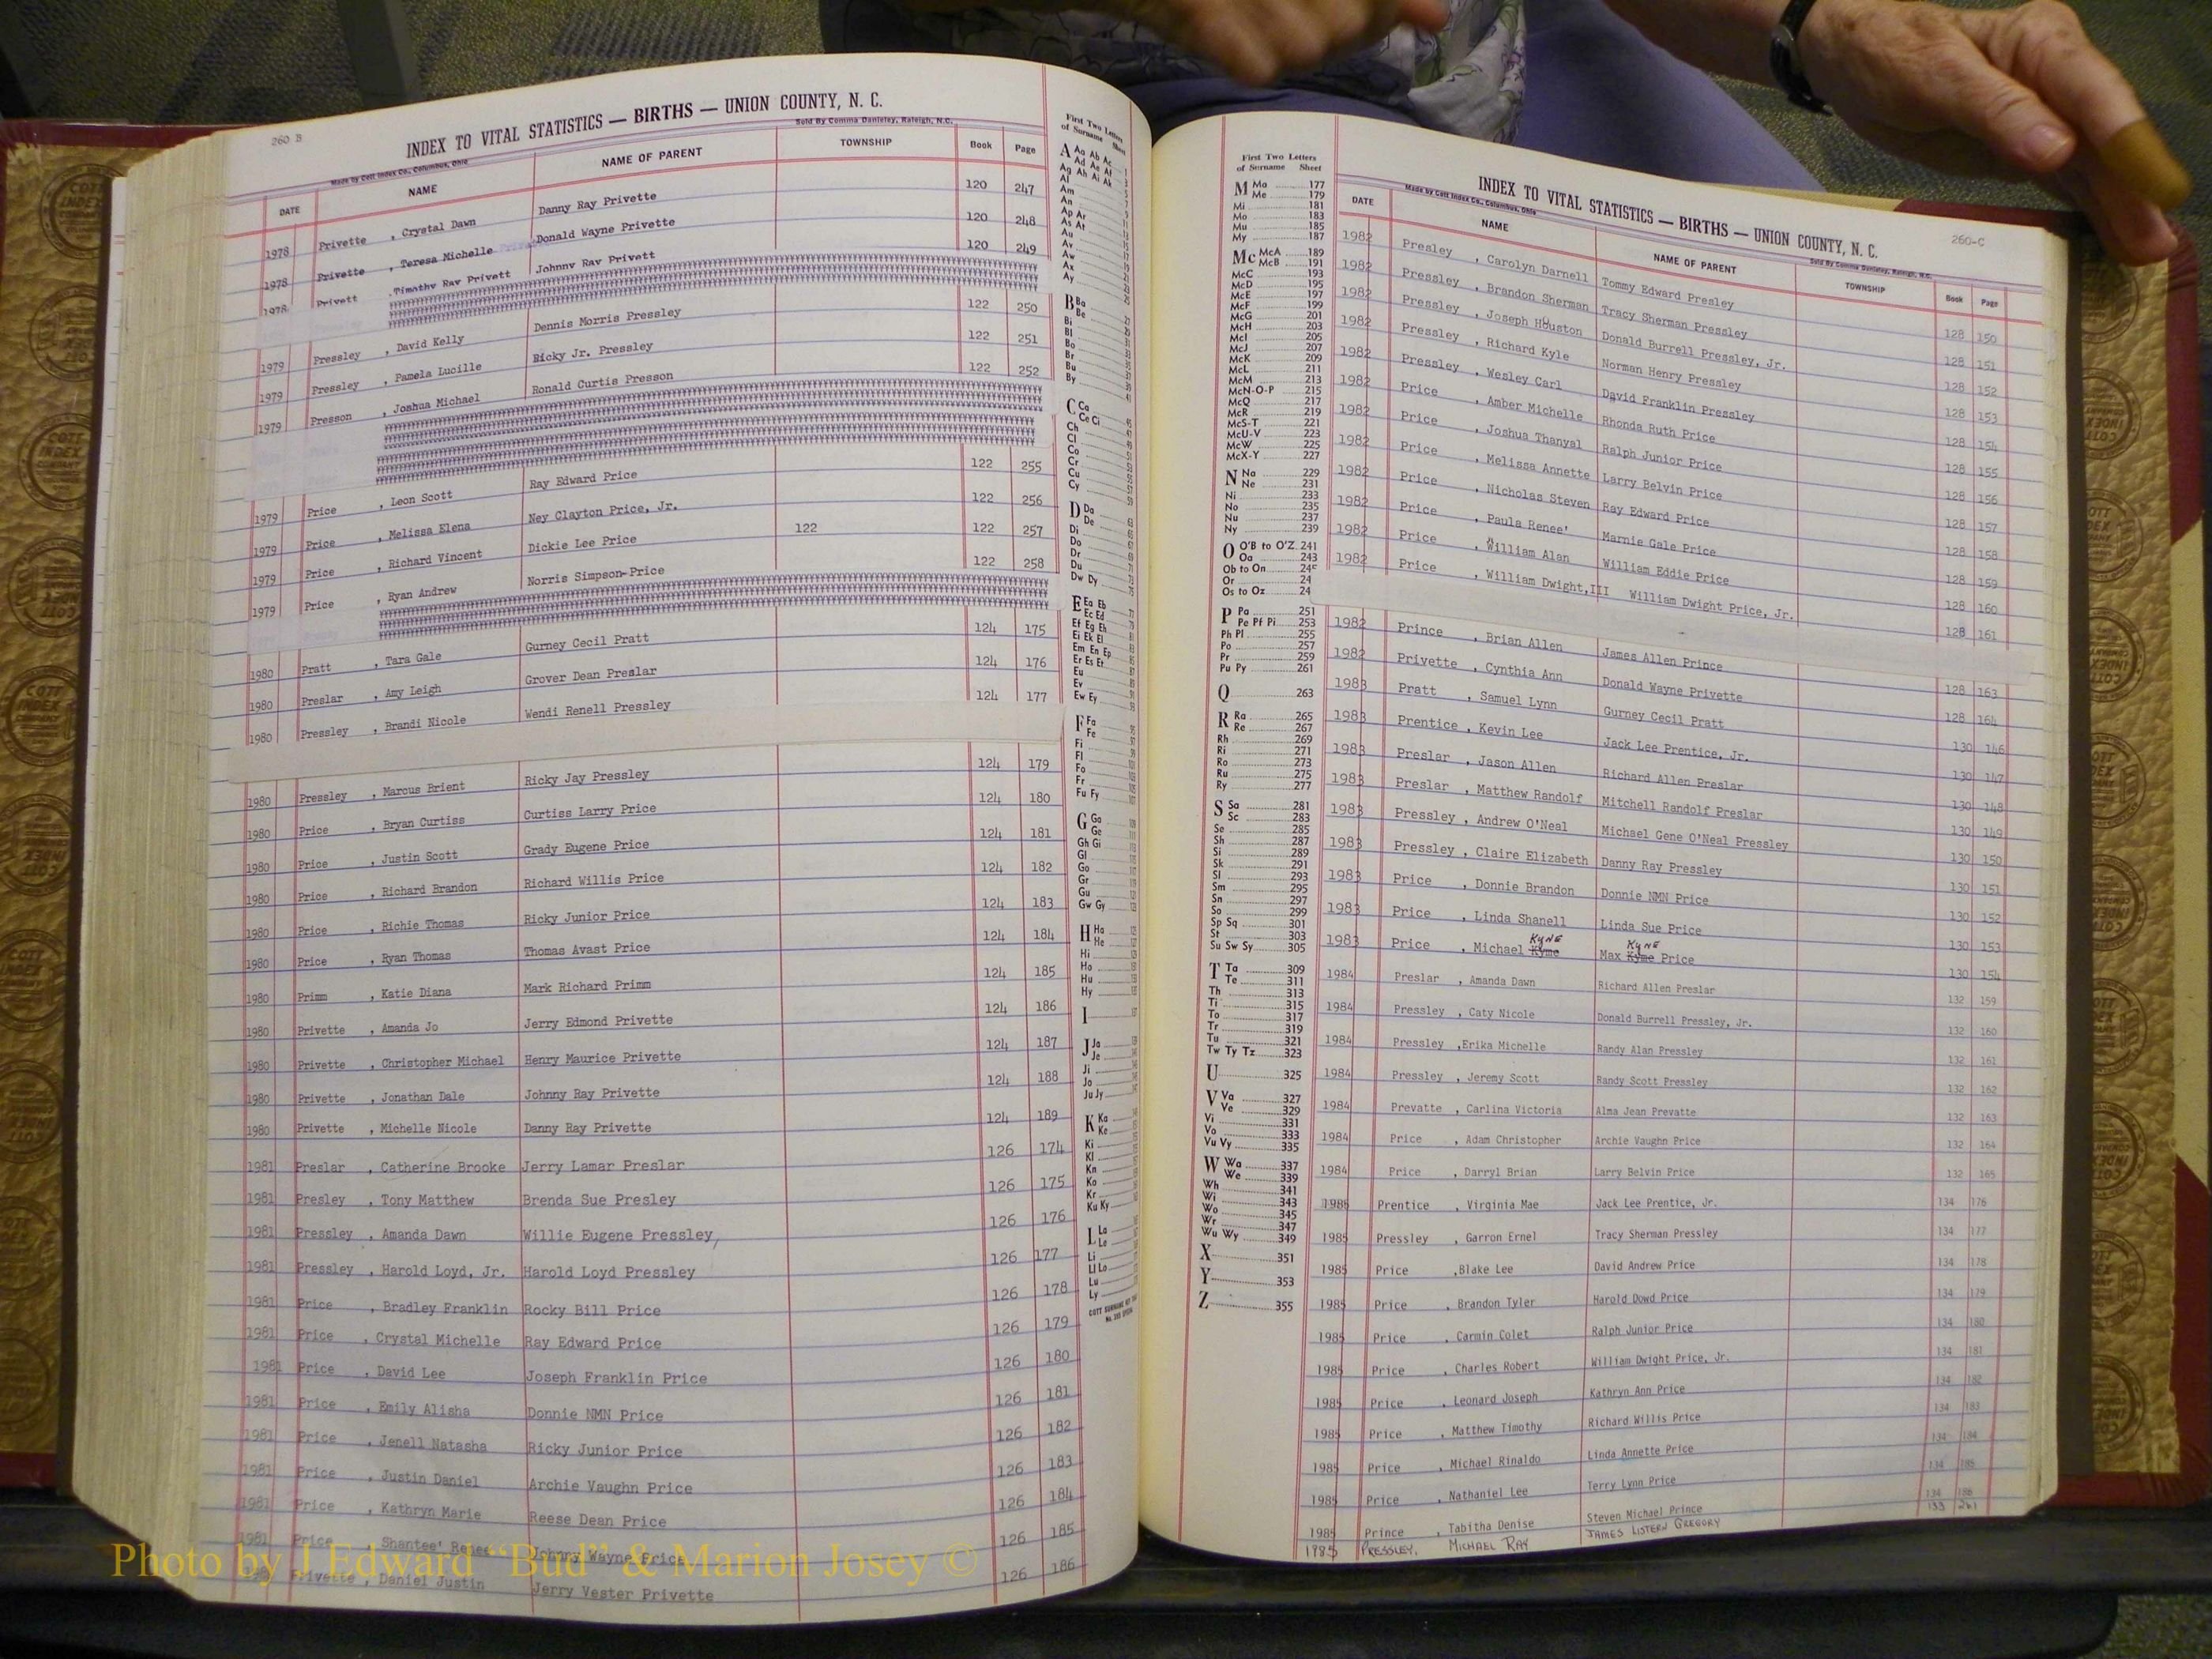 260 B
INDEX TO VITAL STATISTICS — BIRTHS — UNION COUNTY, N. C.
Made by Cott Index Co., Columbus, Ohio Sold By Comma Danieley, Raleigh, N.C.
DATE NAME NAME OF PARENT TOWNSHIP Book Page
1978 Privette , Crystal Dawn Danny Ray Privette 120 247
1978 Privette , Teresa Michelle Donald Wayne Privette 120 248
1978 Privett , Timothy Ray Privett Johnny Ray Privett 120 249
1979 Pressley , David Kelly Dennis Morris Pressley 122 250
1979 Pressley , Pamela Lucille Ricky Jr. Pressley 122 251
1979 Presson , Joshua Michael Ronald Curtis Presson 122 252
1979 Price , Leon Scott Ray Edward Price 122 255
1979 Price , Melissa Elena Ney Clayton Price, Jr. 122 256
1979 Price , Richard Vincent Dickie Lee Price 122 122 257
1979 Price , Ryan Andrew Norris Simpson Price 122 258
1980 Pratt , Tara Gale Gurney Cecil Pratt 124 175
1980 Preslar , Amy Leigh Grover Dean Preslar 124 176
1980 Pressley , Brandi Nicole Wendi Renell Pressley 124 177
1980 Pressley , Marcus Brient Ricky Jay Pressley 124 179
1980 Price , Bryan Curtiss Curtiss Larry Price 124 180
1980 Price , Justin Scott Grady Eugene Price 124 181
1980 Price , Richard Brandon Richard Willis Price 124 182
1980 Price , Richie Thomas Ricky Junior Price 124 183
1980 Price , Ryan Thomas Thomas Avast Price 124 184
1980 Primm , Katie Diana Mark Richard Primm 124 185
1980 Privette , Amanda Jo Jerry Edmond Privette 124 186
1980 Privette , Christopher Michael Henry Maurice Privette 124 187
1980 Privette , Jonathan Dale Johnny Ray Privette 124 188
1980 Privette , Michelle Nicole Danny Ray Privette 124 189
1981 Preslar , Catherine Brooke Jerry Lamar Preslar 126 174
1981 Presley , Tony Matthew Brenda Sue Presley 126 175
1981 Pressley , Amanda Dawn Willie Eugene Pressley 126 176
1981 Pressley , Harold Loyd, Jr. Harold Loyd Pressley 126 177
1981 Price , Bradley Franklin Rocky Bill Price 126 178
1981 Price , Crystal Michelle Ray Edward Price 126 179
1981 Price , David Lee Joseph Franklin Price 126 180
1981 Price , Emily Alisha Donnie NMN Price 126 181
1981 Price , Jenell Natasha Ricky Junior Price 126 182
1981 Price , Justin Daniel Archie Vaughn Price 126 183
1981 Price , Kathryn Marie Reese Dean Price 126 184
1981 Price , Shantee' Renee Johnny Wayne Price 126 185
Privette , Daniel Justin Jerry Vester Privette 126 186
First Two Letters
of Surname Sheet
A Aa Ab Ac
Ad Ae Af
Ag Ah Ai Ak
Al
Am
An
Ap Ar
As At
Au
Av
Aw
Ax
Ay
B Ba
Be
Bi
Bl
Bo
Br
Bu
By
C Ca
Ce Ci
Ch
Cl
Co
Cr
Cu
Cy
D Da
De
Di
Do
Dr
Du
Dw Dy
E Ea Eb
Ec Ed
Ef Eg Eh
Ei Ek El
Em En Ep
Er Es Et
Eu
Ev
Ew Ey
F Fa
Fe
Fi
Fl
Fo
Fr
Fu Fy
G Ga
Ge
Gh Gi
Gl
Go
Gr
Gu
Gw Gy
H Ha
He
Hi
Ho
Hu
Hy
I
J Ja
Je
Ji
Jo
Ju Jy
K Ka
Ke
Ki
Kl
Kn
Ko
Kr
Ku Ky
L La
Le
Li
Ll Lo
Lu
Ly
First Two Letters
of Surname Sheet
M Ma 177
Me 179
Mi 181
Mo 183
Mu 185
My 187
Mc McA 189
McB 191
McC 193
McD 195
McE 197
McF 199
McG 201
McH 203
McI 205
McJ 207
McK 209
McL 211
McM 213
McN-O-P 215
McQ 217
McR 219
McS-T 221
McU-V 223
McW 225
McX-Y 227
N Na 229
Ne 231
Ni 233
No 235
Nu 237
Ny 239
O O'B to O'Z 241
Oa 243
Ob to On 24
Or 24
Os to Oz 24
P Pa 251
Pe Pf Pi 253
Ph Pl 255
Po 257
Pr 259
Pu Py 261
Q 263
R Ra 265
Re 267
Rh 269
Ri 271
Ro 273
Ru 275
Ry 277
S Sa 281
Sc 283
Se 285
Sh 287
Si 289
Sk 291
Sl 293
Sm 295
Sn 297
So 299
Sp Sq 301
St 303
Su Sw Sy 305
T Ta 309
Te 311
Th 313
Ti 315
To 317
Tr 319
Tu 321
Tw Ty Tz 323
U 325
V Va 327
Ve 329
Vi 331
Vo 333
Vu Vy 335
W Wa 337
We 339
Wh 341
Wi 343
Wo 345
Wr 347
Wu Wy 349
X 351
Y 353
Z 355
INDEX TO VITAL STATISTICS — BIRTHS — UNION COUNTY, N. C. 260-C
Made by Cott Index Co., Columbus, Ohio Sold By Comma Danieley, Raleigh, N.C.
DATE NAME NAME OF PARENT TOWNSHIP Book Page
1982 Presley , Carolyn Darnell Tommy Edward Presley 128 150
1982 Pressley , Brandon Sherman Tracy Sherman Pressley 128 151
1982 Pressley , Joseph Houston Donald Burrell Pressley, Jr. 128 152
1982 Pressley , Richard Kyle Norman Henry Pressley 128 153
1982 Pressley , Wesley Carl David Franklin Pressley 128 154
1982 Price , Amber Michelle Rhonda Ruth Price 128 155
1982 Price , Joshua Thanyal Ralph Junior Price 128 156
1982 Price , Melissa Annette Larry Belvin Price 128 157
1982 Price , Nicholas Steven Ray Edward Price 128 158
1982 Price , Paula Renee' Marnie Gale Price 128 159
1982 Price , William Alan William Eddie Price 128 160
1982 Price , William Dwight,III William Dwight Price, Jr. 128 161
1982 Prince , Brian Allen James Allen Prince 128 163
1982 Privette , Cynthia Ann Donald Wayne Privette 128 164
1983 Pratt , Samuel Lynn Gurney Cecil Pratt 130 146
1983 Prentice , Kevin Lee Jack Lee Prentice, Jr. 130 147
1983 Preslar , Jason Allen Richard Allen Preslar 130 148
1983 Preslar , Matthew Randolf Mitchell Randolf Preslar 130 149
1983 Pressley , Andrew O'Neal Michael Gene O'Neal Pressley 130 150
1983 Pressley , Claire Elizabeth Danny Ray Pressley 130 151
1983 Price , Donnie Brandon Donnie NMN Price 130 152
1983 Price , Linda Shanell Linda Sue Price 130 153
KYNE KYNE
1983 Price , Michael Kyme Max Kyme Price 130 154
1984 Preslar , Amanda Dawn Richard Allen Preslar 132 159
1984 Pressley , Caty Nicole Donald Burrell Pressley, Jr. 132 160
1984 Pressley ,Erika Michelle Randy Alan Pressley 132 161
1984 Pressley , Jeremy Scott Randy Scott Pressley 132 162
1984 Prevatte , Carlina Victoria Alma Jean Prevatte 132 163
1984 Price , Adam Christopher Archie Vaughn Price 132 164
1984 Price , Darryl Brian Larry Belvin Price 132 165
1985 Prentice , Virginia Mae Jack Lee Prentice, Jr. 134 176
1985 Pressley , Garron Ernel Tracy Sherman Pressley 134 177
1985 Price ,Blake Lee David Andrew Price 134 178
1985 Price , Brandon Tyler Harold Dowd Price 134 179
1985 Price , Carmin Colet Ralph Junior Price 134 180
1985 Price , Charles Robert William Dwight Price, Jr. 134 181
1985 Price , Leonard Joseph Kathryn Ann Price 134 182
1985 Price , Matthew Timothy Richard Willis Price 134 183
1985 Price , Michael Rinaldo Linda Annette Price 134 184
1985 Price , Nathaniel Lee Terry Lynn Price 134 185
1985 Prince , Tabitha Denise Steven Michael Prince 134 186
1985 PRESSLEY, MICHAEL RAY JAMES LISTERN GREGORY 133 261
Photo by J Edward "Bud" & Marion Josey ©